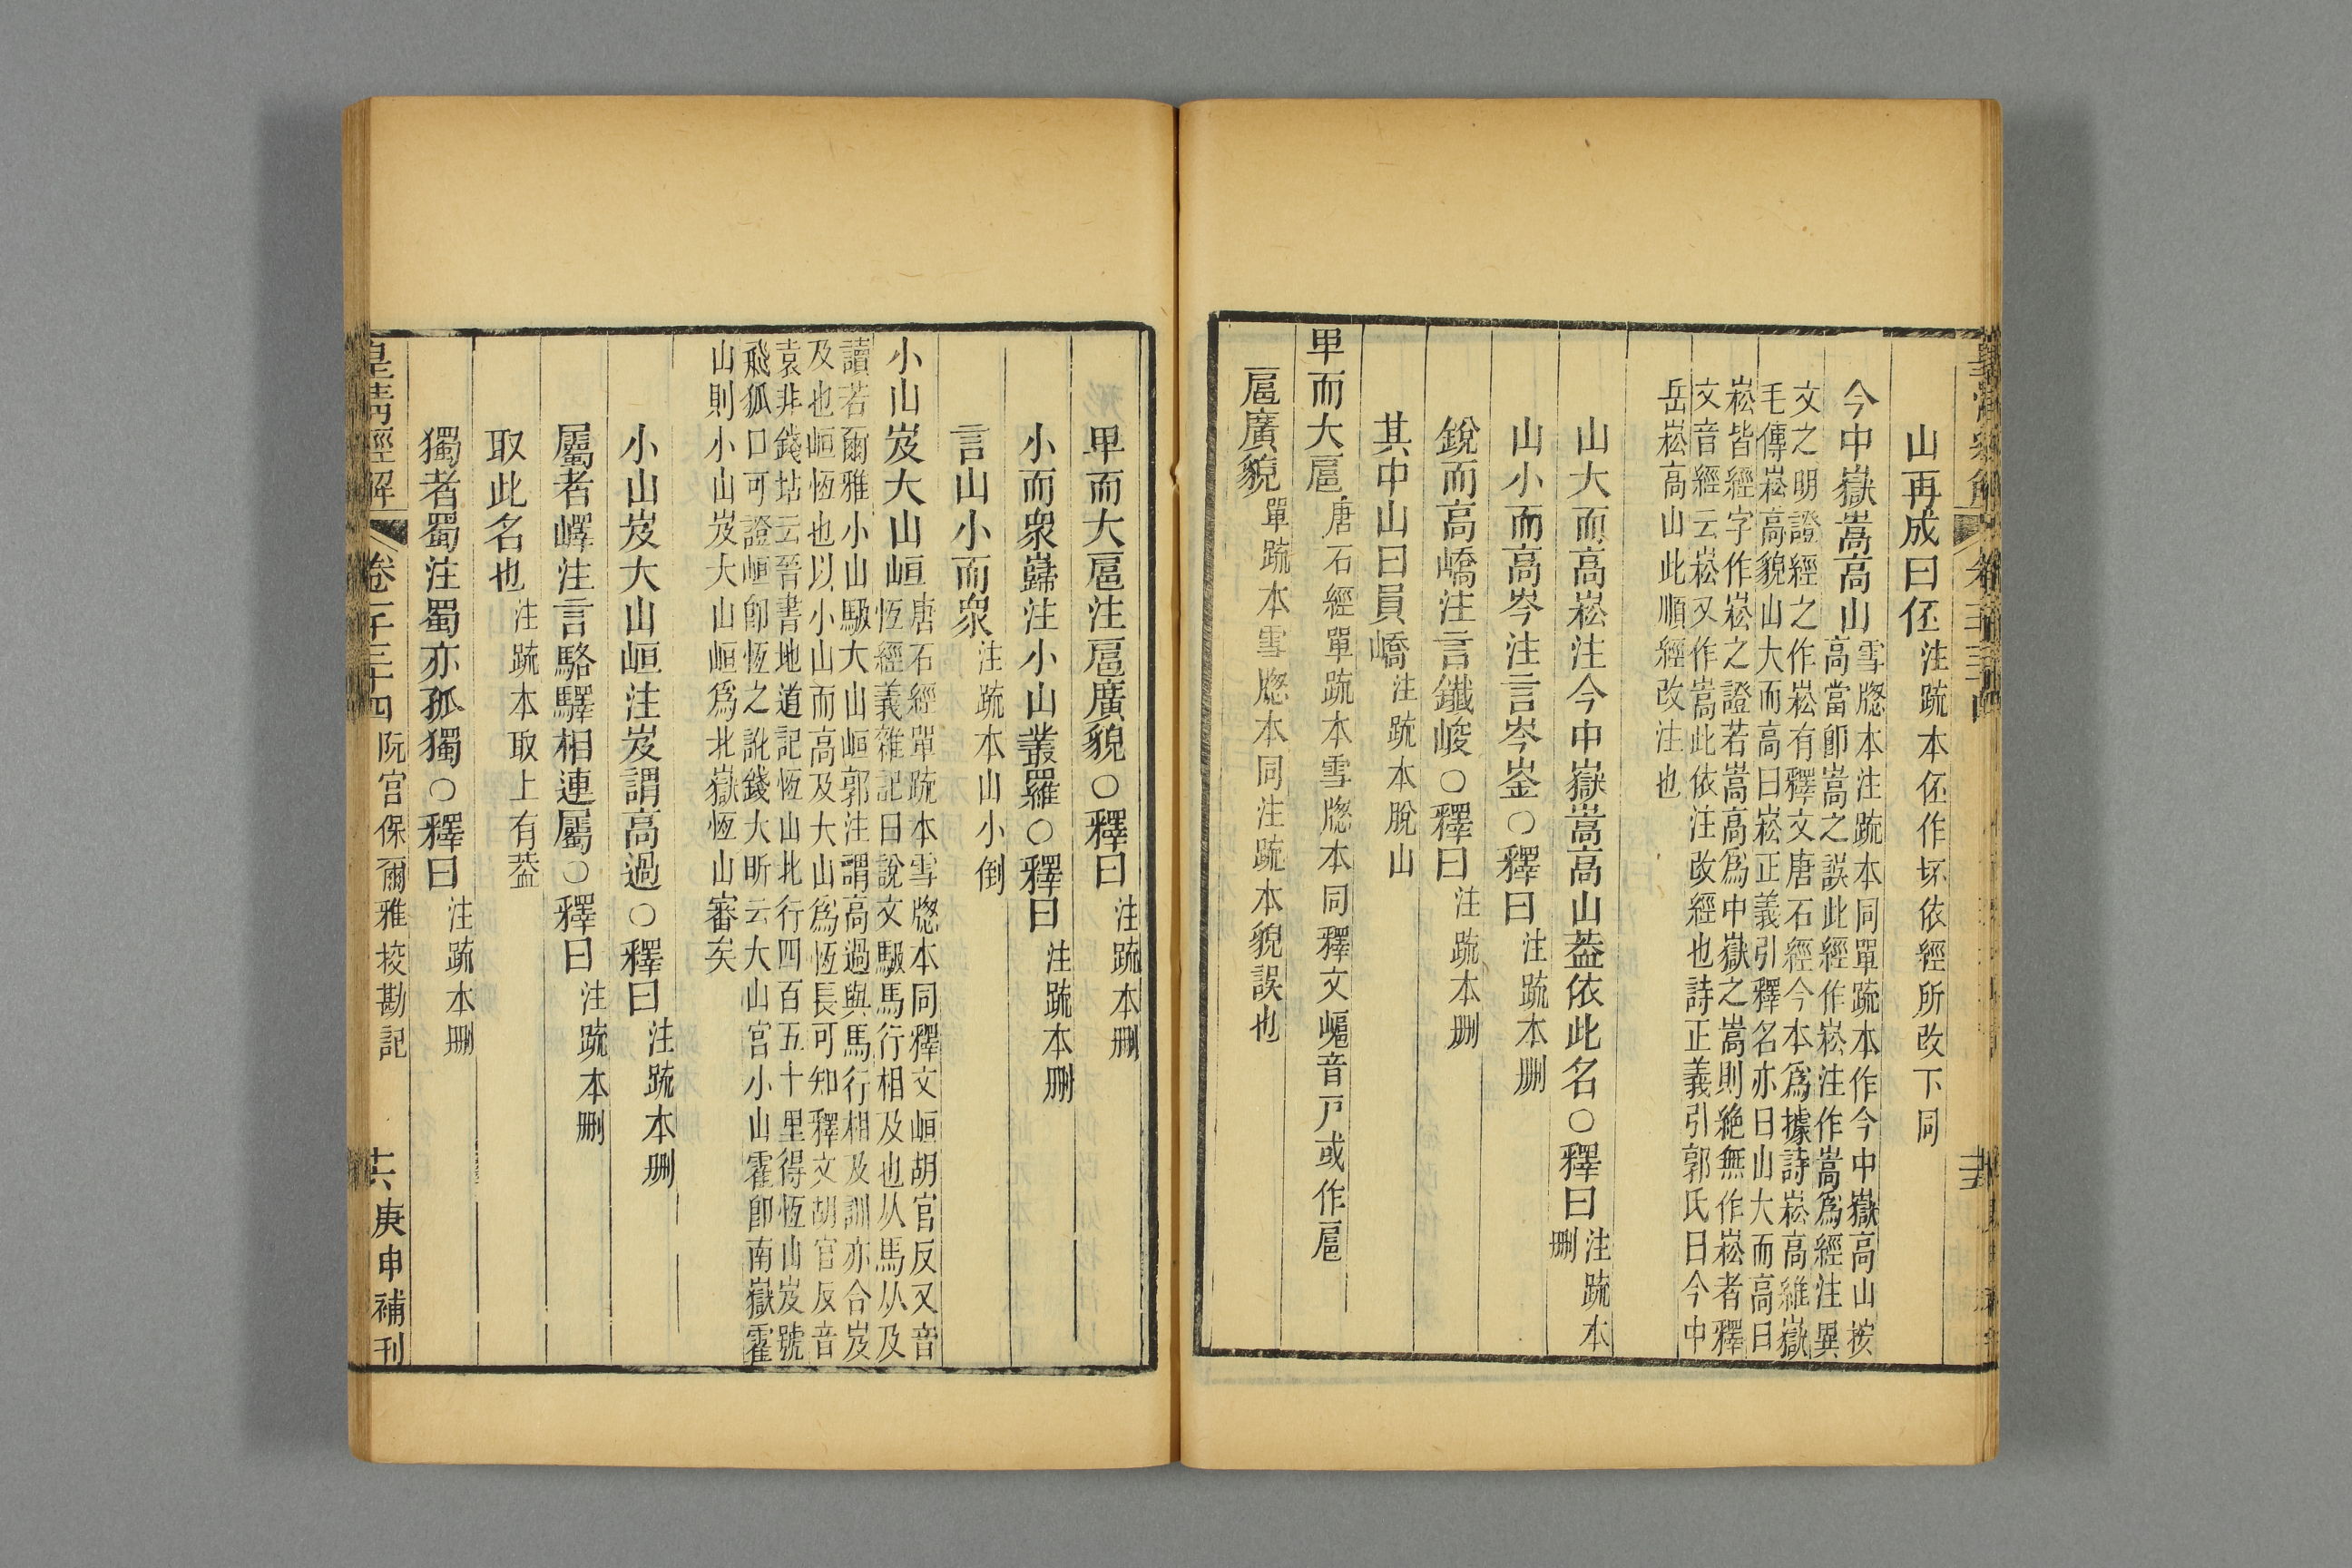 山再成曰伾注䟽本伾作坯依經所改下同
今中嶽嵩高山雪牕本注䟽本同單䟽本作今中嶽高山按
高當卽嵩之誤此經作崧注作嵩爲經注異
文之明證經之作崧有釋文唐石經今本爲據詩崧高維嶽
毛傳崧高貌山大而高曰崧正義引釋名亦曰山大而高曰
崧皆經字作崧之證若嵩高爲中嶽之嵩則絶無作崧者釋
文音經云崧又作嵩此依注改經也詩正義引郭氏曰今中
岳崧高山此順經改注也
山大而高崧注今中嶽嵩高山葢依此名○釋曰注䟽本
刪
山小而高岑注言岑崟○釋曰注䟽本刪
銳而高嶠注言鑯峻○釋曰注䟽本刪
其中山曰員嶠注䟽本脫山
卑而大扈唐石經單䟽本雪牕本同釋文㠅音戸或作扈
扈廣貌單䟽本雪牕本同注䟽本貌誤也
卑而大扈注扈廣貌○釋曰注䟽本刪
小而衆巋注小山叢羅○釋曰注䟽本刪
言山小而衆注䟽本山小倒
小山岌大山峘唐石經單䟽本雪牕本同釋文峘胡官反又音
恆經義雜記曰說文馺馬行相及也从馬从及
讀若爾雅小山馺大山峘郭注謂高過與馬行相及訓亦合岌
及也峘恆也以小山而高及大山爲恆長可知釋文胡官反音
袁非錢坫云晉書地道記恆山北行四百五十里得恆山岌號
飛狐口可證峘卽恆之訛錢大昕云大山宮小山霍卽南嶽霍
山則小山岌大山峘爲北嶽恆山審矣
小山岌大山峘注岌謂高過○釋曰注䟽本刪
屬者嶧注言駱驛相連屬○釋曰注䟽本刪
取此名也注䟽本取上有葢
獨者蜀注蜀亦孤獨○釋曰注䟽本刪
皇清經解 卷一千三十四 阮宮保爾雅挍勘記 十六 庚申補刊